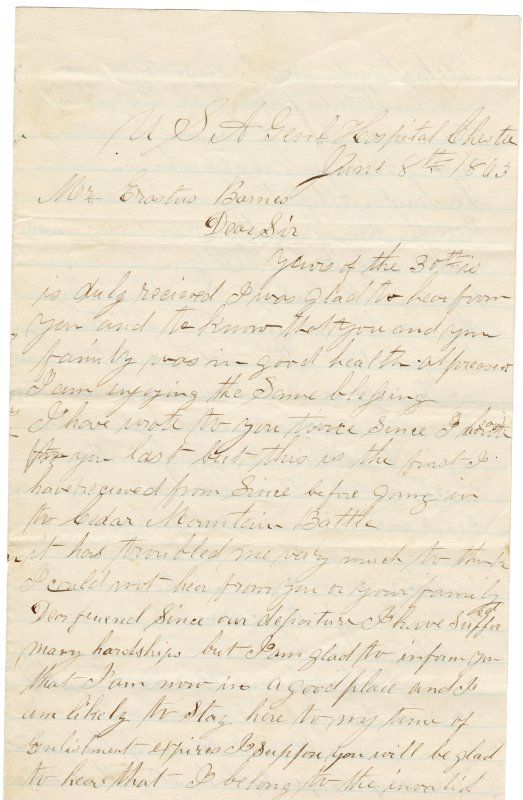 U S A Genl Hospital Chester
June 8th 1863
Mr Erastus Barnes
Dear Sir
Yours of the 30th is
is duly recieved I was glad to hear from
you and to know that you and your
family was in good health at preasent
I am enjoying the Same blessing
I have wrote to you twice Since I
you last but this is the first I
have recieved from Since before going in
to Cedar Mountain Battle
it has troubled me very much to think
I could not hear from you or your family
Dear friend Since our departure I have Suffer
many hardships but I am glad to inform you
that I am now in a good place and I
am likely to Stay here to my time of
Enlistment expires I Suppose you will be glad
to hear that I belong to the invalid